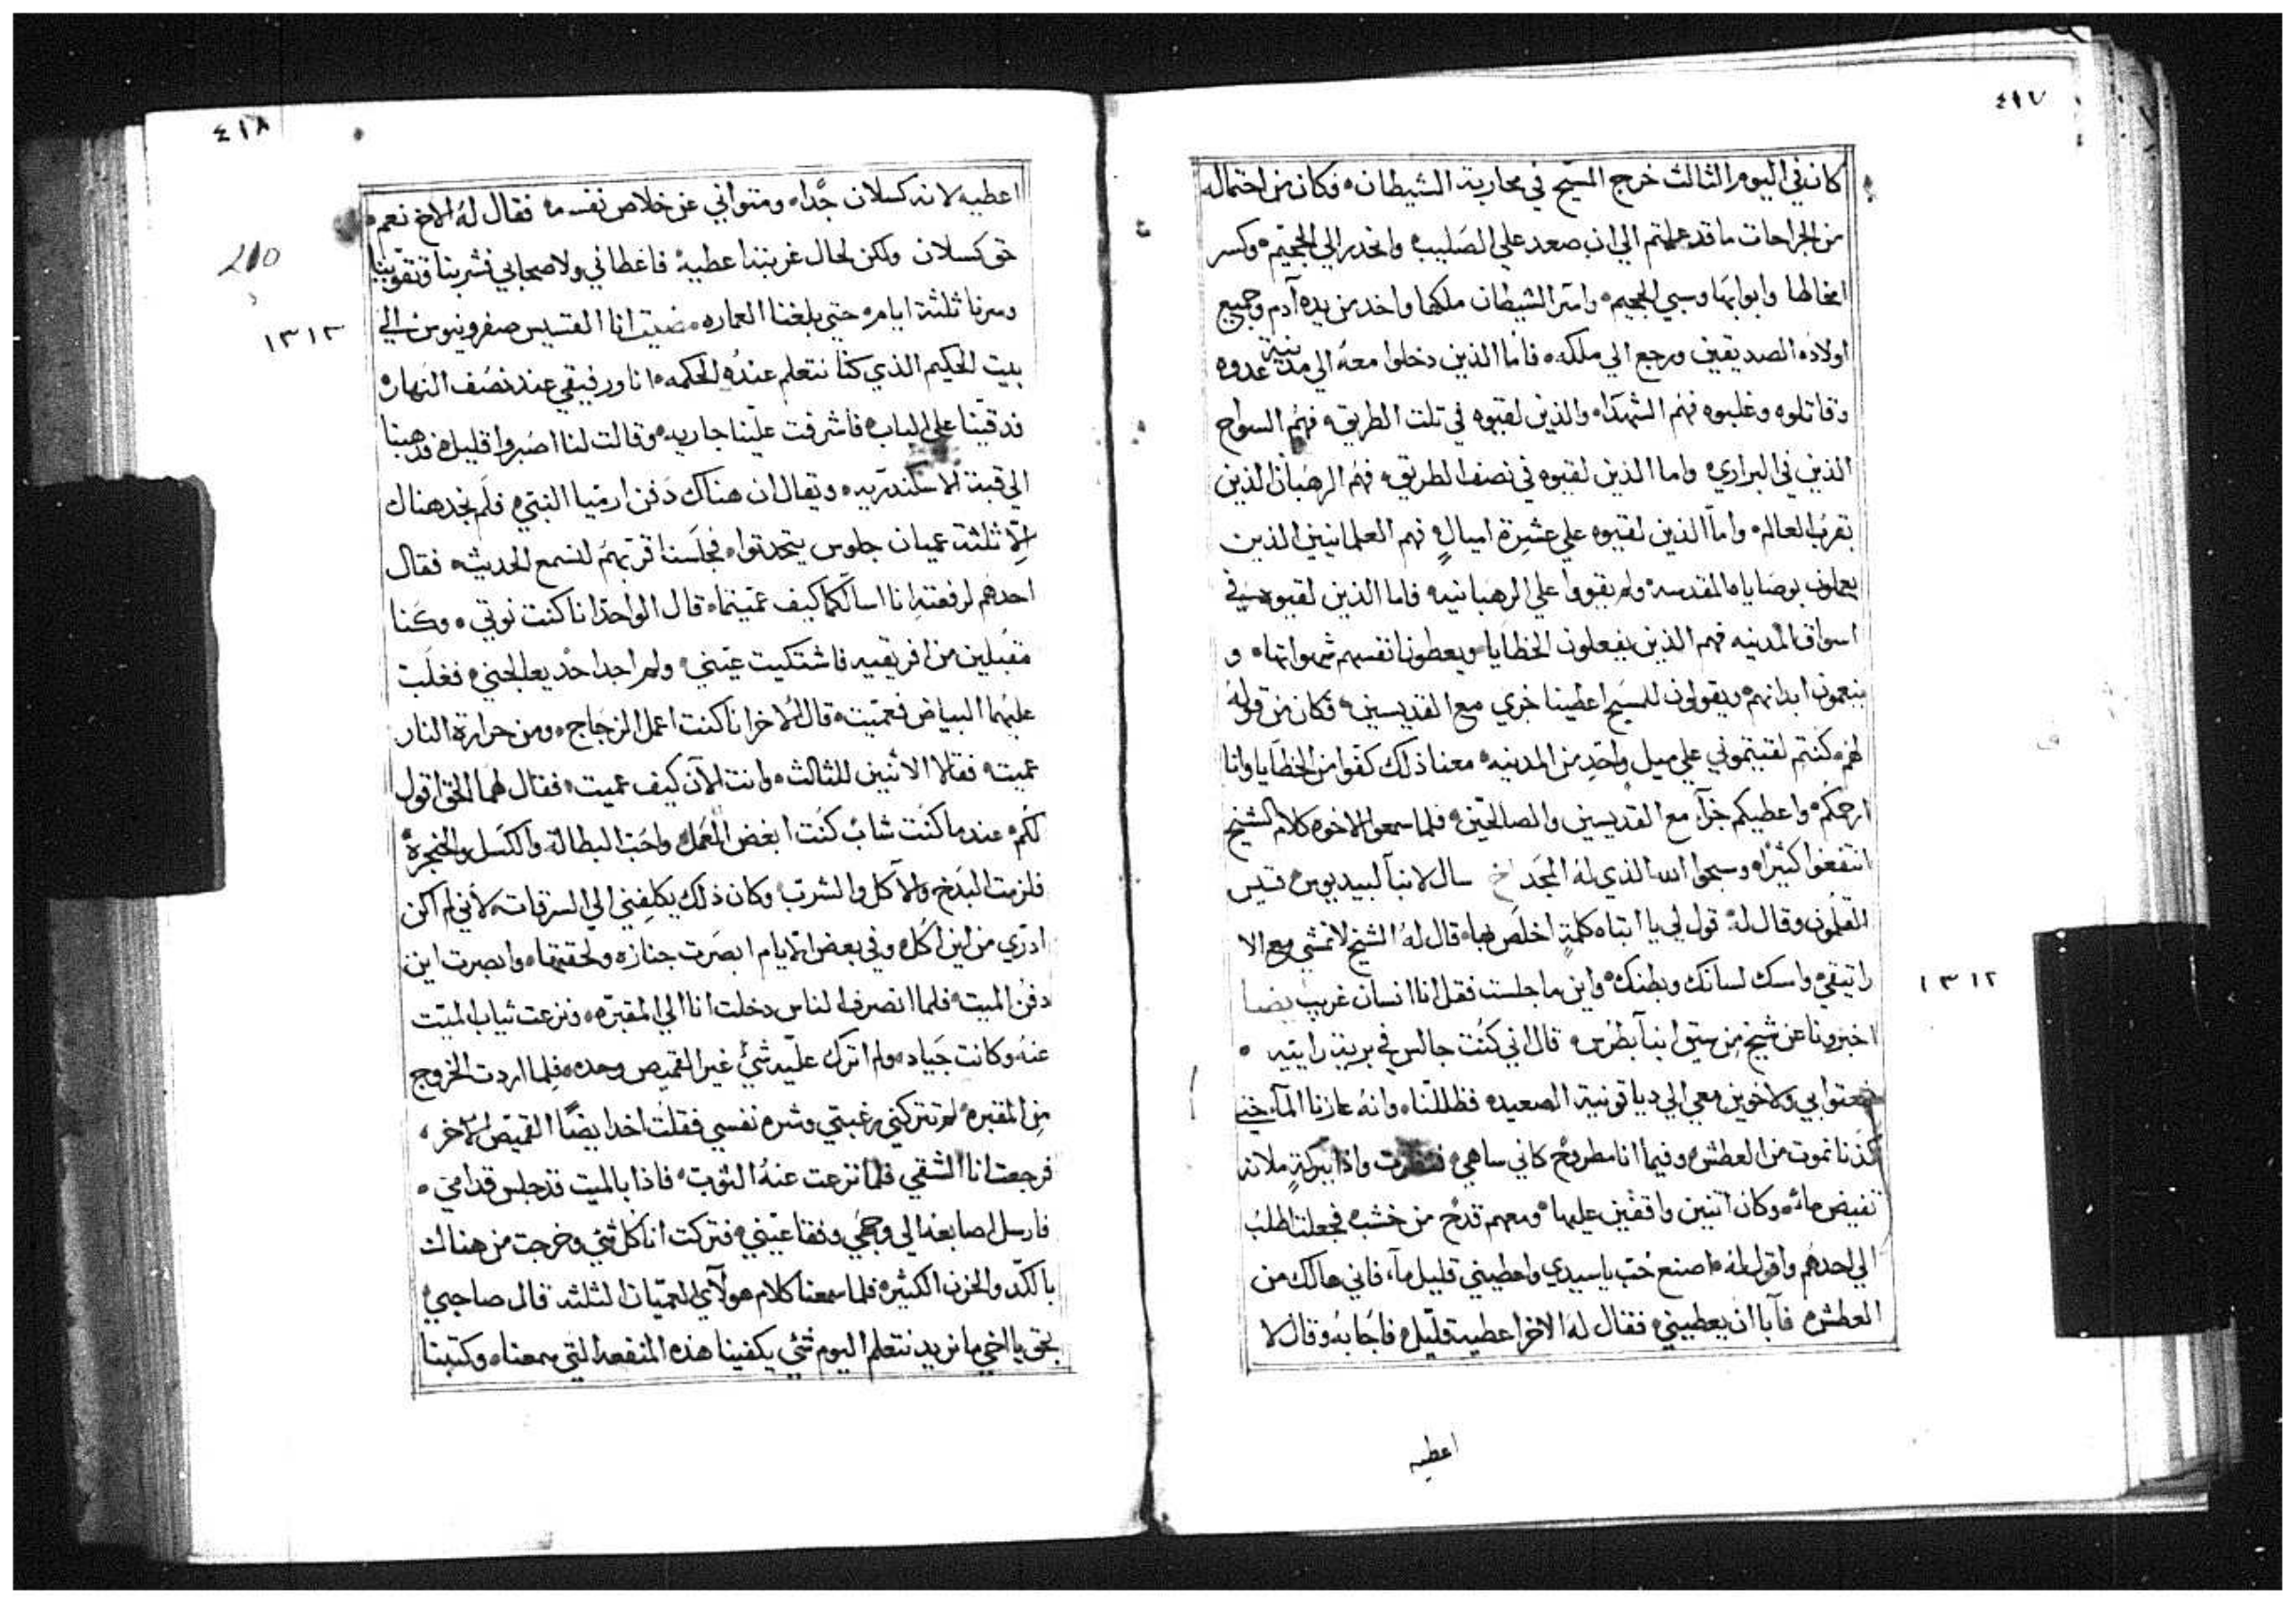 ٤١٧
كان في اليوم الثالث خرج المسيح في محاربة الشيطان ه فكان من احتماله
من الجراحات ما قد علمتم الي ان صعد علي الصليب وانحدر الي الجحيم ه وكسر
امخالها وابوابها وسبي الجحيم ه واسر الشيطان ملكها واخد من يده آدم وجميع
اولاده الصديقين ورجع الي ملكه ه فاما الذين دخلوا معه الي مدينة عدوه
وقاتلوه وغلبوه فهم الشهدا ه والذين لقيوه في تلت الطريق ه فهم السواح
الذين في البراري ه واما الذين لقيوه في نصف الطريق ه فهم الرهبان الذين
بقرب العالم ه واما الذين لقيوه علي عشرة اميال فهم العلمانيين الذين
يعملون بوصاياه المقدسه ولم يقووا علي الرهبانيه فاما الذين لقيوه في
اسواق المدينه فهم الذين يفعلون الخطايا ويعطون انفسهم شهواتها ه و
ينعمون ابدانهم ه ويقولون للمسيح اعطينا جزي مع القديسين ه فكان من قوله
لهم ه كنتم لقيتموني علي ميل واحد من المدينه ه معنا ذلك كفوا من الخطايا وانا
ارحمكم ه واعطيكم جزآ مع القديسين والصالحين ه فلما سمعوا الاخوه كلام الشيخ
انتفعوا كثيرا ه وسبحوا الله الذي له المجد خ سال الانبا لبيديوس ه قديس
القلمون وقال له قول لي يا ابتاه كلمة اخلص بها ه قال له الشيخ لا تمشي مع الا
راتيقي ه وامسك لسانك وبطنك ه واين ما جلست فقل انا انسان غريب يضا
١٣١٢
اخبرونا عن شيخ من ستي انبآ بطرس ه قال اني كنت جالس في برية رايتيه ه
فبعتوا بي ولاخوين معي الي دياقونية الصعيد ه فظللنا ه وانه عازنا المآء حتي
كدنا نموت من العطش ه وفيما انا مطروح كاني ساهي ه فنظرت واذا ببركة ملانه
تفيض مائه ه وكان اتنين واقفين عليها ه ومعهم قدح من خشب ه فجعلت اطلب
الي احدهم واقول له ه اصنع حب يا سيدي واعطيني قليل مآء فاني هالك من
العطش ه فآبا ان يعطيني ه فقال له الاخر اعطيه قليل ه فاجابه وقال لا
اعطيه
٤١٨
اعطيه لانه كسلان جدا ه ومتواني عن خلاص نفسه ه فقال له الاخ نعم ه
210
حق كسلان ولكن لحال غربته اعطيه ه فاعطاني ولاصحابي فشربنا وتقوينا
وسرنا ثلثة ايام ه حتي بلغنا العماره مضيت انا القسيس صفرونيوس الي
١٣١٣
بيت الحكيم الذي كنا نتعلم عنده الحكمه ه انا ورفيقي عند نصف النهار ه
فدقينا علي الباب ه فاشرفت علينا جاريه ه وقالت لنا اصبروا قليل ه فدهبنا
الي قبة الاسكندريه ه ويقال ان هناك دفن ارميا النبي ه فلم نجد هناك
الا ثلثة عميان جلوس يتحدتوا ه فجلسنا قربهم لنسمع الحديث ه فقال
احدهم لرفقته انا اسالكما كيف عميتما ه قال الواحد انا كنت نوتي ه وكنا
مقبلين من افريقيه فاشتكيت عيني ه ولم اجد احد يعالجني ه فغلب
عليهما البياض فعميت ه قال الاخر انا كنت اعمل الزجاج ه ومن حرارة النار
عميت ه فقالا الاثنين للثالث ه وانت الآن كيف عميت ه فقال لهما الحق اقول
لكم ه عند ما كنت شاب كنت ابغض العمل ه واحب البطالة والكسل والحنجرة
فلزمت البدخ والاكل والشرب ه وكان ذلك يكلفني الي السرقات ه لاني لم اكن
ادري من اين اكل ه وفي بعض الايام ابصرت جنازه ولحقتها ه وابصرت اين
دفن الميت ه فلما انصرف الناس دخلت انا الي المقبره ه ونزعت ثياب الميت
عنه وكانت جياد ه ولم اترك عليه شئ غير القميص وحده ه فلما اردت الخروج
من المقبره ه لم تتركني رغبتي وشره نفسي فقلت اخد ايضا القميص الاخر ه
فرجعت انا الشقي فلما نزعت عنه الثوب ه فاذا بالميت قد جلس قدامي ه
فارسل اصابعه الي وجهي وفقا عيني ه فتركت انا كل شي وخرجت من هناك
بالكد والحزن الكثير ه فلما سمعنا كلام هولآي العميان الثلثه قال صاحبي ه
بحق يا اخي ما نريد نتعلم اليوم شي يكفينا هذه المنفعه التي سمعنا ه وكتبنا